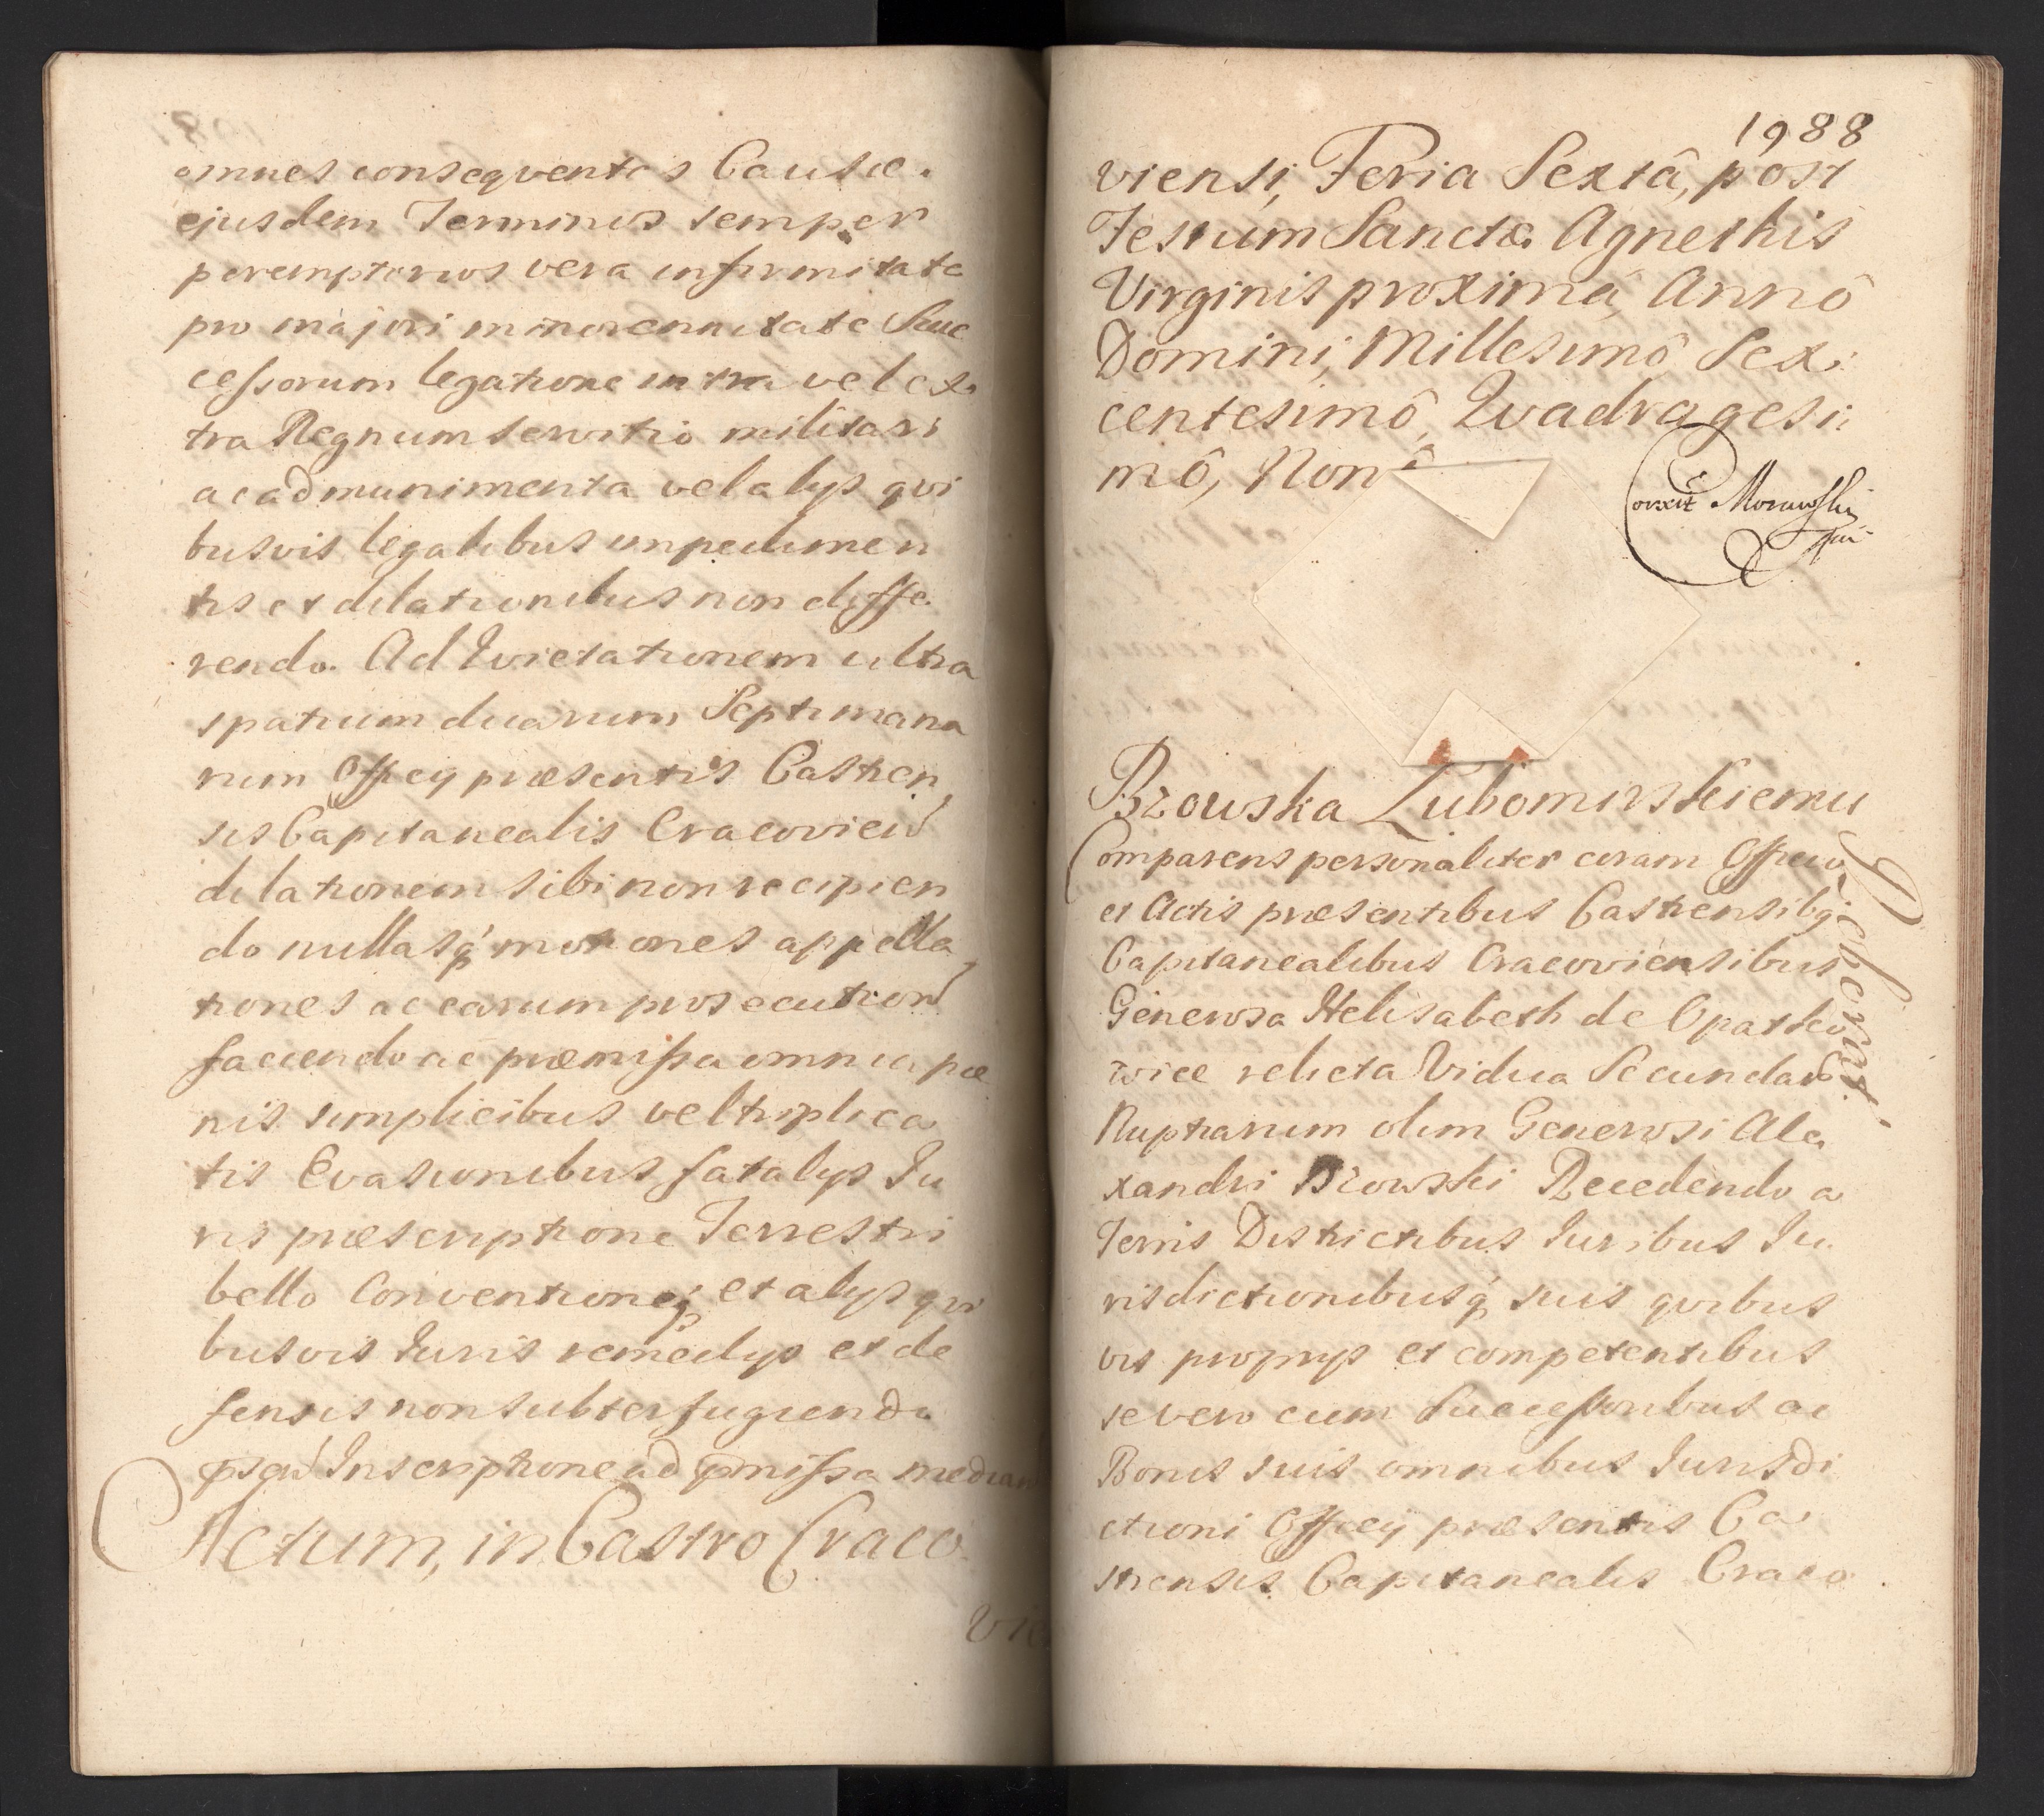 omnes conseqventes Causæ
ejusdem Terminos semper
peremptorios vera infirmitate
pro majori minorennitate Suc
cessorum legatione intra vel ex
tra Regnum servitio militari
ac ad munimenta vel alys qvi
busvis legalibus impedimen
tis et dilationibus non diffe
rendo. Ad Evictationem ultra
spatium duarum Septimana
rum Officy præsentis Castren
sis Capitanealis Cracovien
dilationem sibi non recipien
do nullasq motiones appella
tiones ac earum prosecution
faciendo ac præmissa omnia pœ
nis simplicibus vel triplica
tis Evasionibus fatalys Ju
ris præscriptione Terrestri
bello Conventioneq et alys qvi
busvis Juris remedys et de
fensis non subterfugiendo
Inscriptione ad pmissa median
Actum, in Castro Craco
vien
1988
viensi, Feria Sextâ, post
Festum Sanctæ Agnethis
Virginis proximâ, Annô
Domini, Millesimô Sex:
centesimô, Qvadragesi:
mô, Nonô
Correxit Morawski
mpr
Bzowska Lubomirskiemu
Roborat.
Comparens personaliter coram Officio
et Actis præsentibus Castrensibq
Capitanealibus Cracoviensibus
Generosa Helisabeth de Opatko
wice relicta Vidua Secundar
Nuptiarum olim Generosi Ale
xandri Bzowski Recedendo a
Terris Districtibus Juribus Ju
risdictionibusq suis qvibus
vis proprys et competentibus
se vero cum Successoribus ac
Bonis suis omnibus Jurisdi
ctioni Officy præsentis Ca
strensis Capitanealis Craco